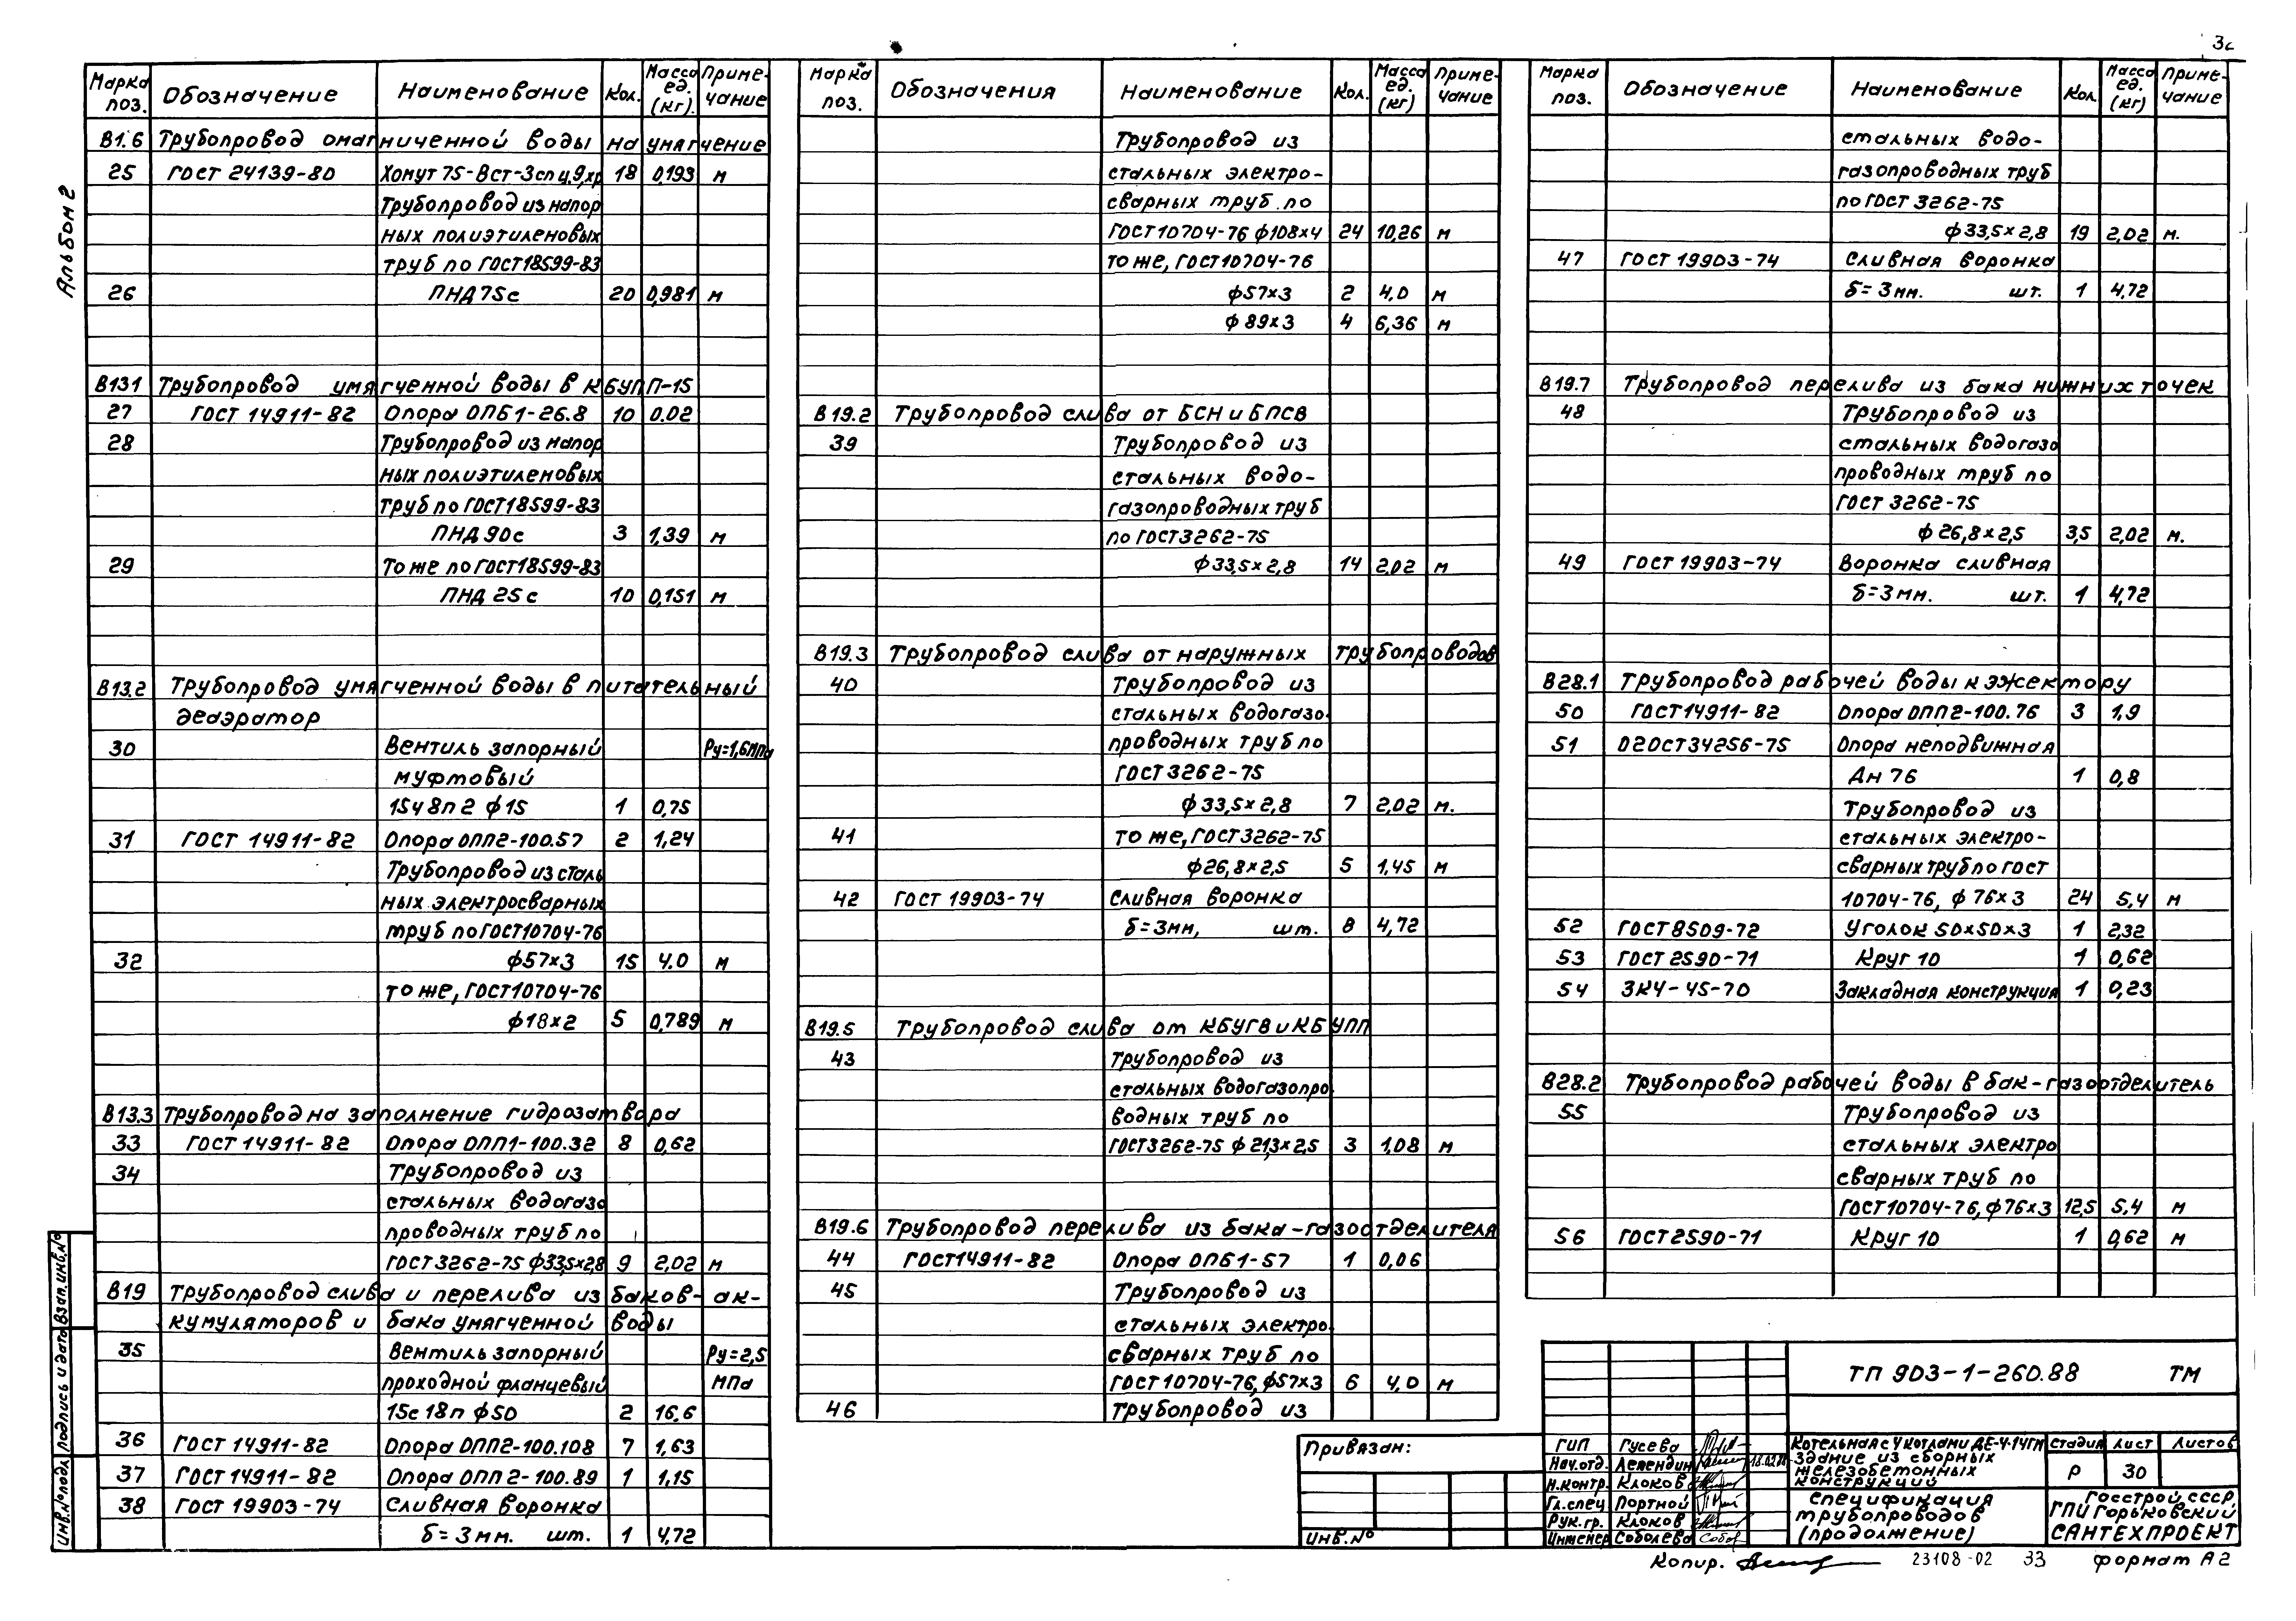 Альбом 2
Марка поз. Обозначение Наименование Кол. Масса ед. (кг). Приме- чание
В1.6 Трубопровод омагниченной воды на умягчение
25 ГОСТ 24139-80 Хомут 75-Вст-3сп ц.9,хр 18 0,193 м
Трубопровод из напор
ных полиэтиленовых
труб по ГОСТ18599-83
26 ПНД 75с 20 0,981 м
В131 Трубопровод умягченной воды в КБУПП-15
27 ГОСТ 14911-82 Опора ОПБ1-26.8 10 0.02
28 Трубопровод из напор
ных полиэтиленовых
труб по ГОСТ18599-83
ПНД 90с 3 1,39 м
29 То же по ГОСТ18599-83
ПНД 25с 10 0,151 м
В13.2 Трубопровод умягченной воды в питательный
деаэратор
30 Вентиль запорный Ру=1,6МПа
муфтовый
15ч 8п 2 ф15 1 0,75
31 ГОСТ 14911-82 Опора ОПП2-100.57 2 1,24
Трубопровод из сталь
ных электросварных
труб по ГОСТ10704-76
32 ф57×3 15 4.0 м
то же, ГОСТ10704-76
ф18×2 5 0,789 м
В13.3 Трубопровод на заполнение гидрозатвора
33 ГОСТ 14911-82 Опора ОПП1-100.32 8 0,62
34 Трубопровод из
стальных водогазо
проводных труб по
ГОСТ3262-75 ф33,5×2,8 9 2,02 м
В19 Трубопровод слива и перелива из баков-ак-
кумуляторов и бака умягченной воды
35 Вентиль запорный Ру=2,5
проходной фланцевый МПа
15с 18п ф50 2 16.6
36 ГОСТ 14911-82 Опора ОПП2-100.108 7 1,63
37 ГОСТ 14911-82 Опора ОПП2-100.89 1 1,15
38 ГОСТ 19903-74 Сливная воронка
δ=3мм. шт. 1 4,72
Марка поз. Обозначения Наименование Кол. Масса ед. (кг) Приме- чание
Трубопровод из
стальных электро-
сварных труб по
ГОСТ10704-76 ф108×4 24 10,26 м
то же, ГОСТ10704-76
ф57×3 2 4,0 м
ф89×3 4 6,36 м
В19.2 Трубопровод слива от БСН и БПСВ
39 Трубопровод из
стальных водо-
газопроводных труб
по ГОСТ3262-75
ф33,5×2,8 14 2,02 м
В19.3 Трубопровод слива от наружных трубопроводов
40 Трубопровод из
стальных водогазо-
проводных труб по
ГОСТ3262-75
ф33,5×2,8 7 2,02 м.
41 то же, ГОСТ3262-75
ф26,8×2,5 5 1,45 м
42 ГОСТ 19903-74 Сливная воронка
δ=3мм, шт. 8 4,72
В19.5 Трубопровод слива от КБУГВ и КБУПП
43 Трубопровод из
стальных водогазопро
водных труб по
ГОСТ3262-75 ф21,3×2,5 3 1,08 м
В19.6 Трубопровод перелива из бака-газоотделителя
44 ГОСТ14911-82 Опора ОПБ1-57 1 0,06
45 Трубопровод из
стальных электро-
сварных труб по
ГОСТ10704-76, ф57×3 6 4,0 м
46 Трубопровод из
Марка поз. Обозначение Наименование Кол. Масса ед. (кг) Приме- чание
стальных водо-
газопроводных труб
по ГОСТ 3262-75
ф33,5×2,8 19 2,02 м.
47 ГОСТ 19903-74 Сливная воронка
δ=3мм. шт. 1 4,72
В19.7 Трубопровод перелива из бака нижних точек
48 Трубопровод из
стальных водогазо
проводных труб по
ГОСТ 3262-75
ф26,8×2,5 3,5 2,02 м.
49 ГОСТ 19903-74 Воронка сливная
δ=3мм. шт. 1 4,72
В28.1 Трубопровод рабочей воды к эжектору
50 ГОСТ14911-82 Опора ОПП2-100.76 3 1,9
51 02ОСТ34256-75 Опора неподвижная
Дн 76 1 0,8
Трубопровод из
стальных электро-
сварных труб по ГОСТ
10704-76, ф76×3 24 5,4 м
52 ГОСТ8509-72 Уголок 50×50×3 1 2,32
53 ГОСТ2590-71 Круг 10 1 0,62
54 ЗК4-45-70 Закладная конструкция 1 0,23
В28.2 Трубопровод рабочей воды в бак-газоотделитель
55 Трубопровод из
стальных электро
сварных труб по
ГОСТ10704-76, ф76×3 12,5 5,4 м
56 ГОСТ2590-71 Круг 10 1 0,62 м
Привязан:
Инв.№
ТП 903-1-260.88 ТМ
ГИП Гусева
Нач.отд.
Н.контр. Клоков
Гл.спец Портной
Рук.гр. Клоков
Инженер Соболева
Котельная с 4 котлами ДЕ-4-14ГМ
Здание из сборных
железобетонных
конструкций
Стадия Лист Листов
Р 30
Спецификация
трубопроводов
(продолжение)
Госстрой СССР
ГПИ Горьковский
САНТЕХПРОЕКТ
Инв.№ подл. Подпись и дата Взап.инв.№
Копир. 23108-02 33 формат А2